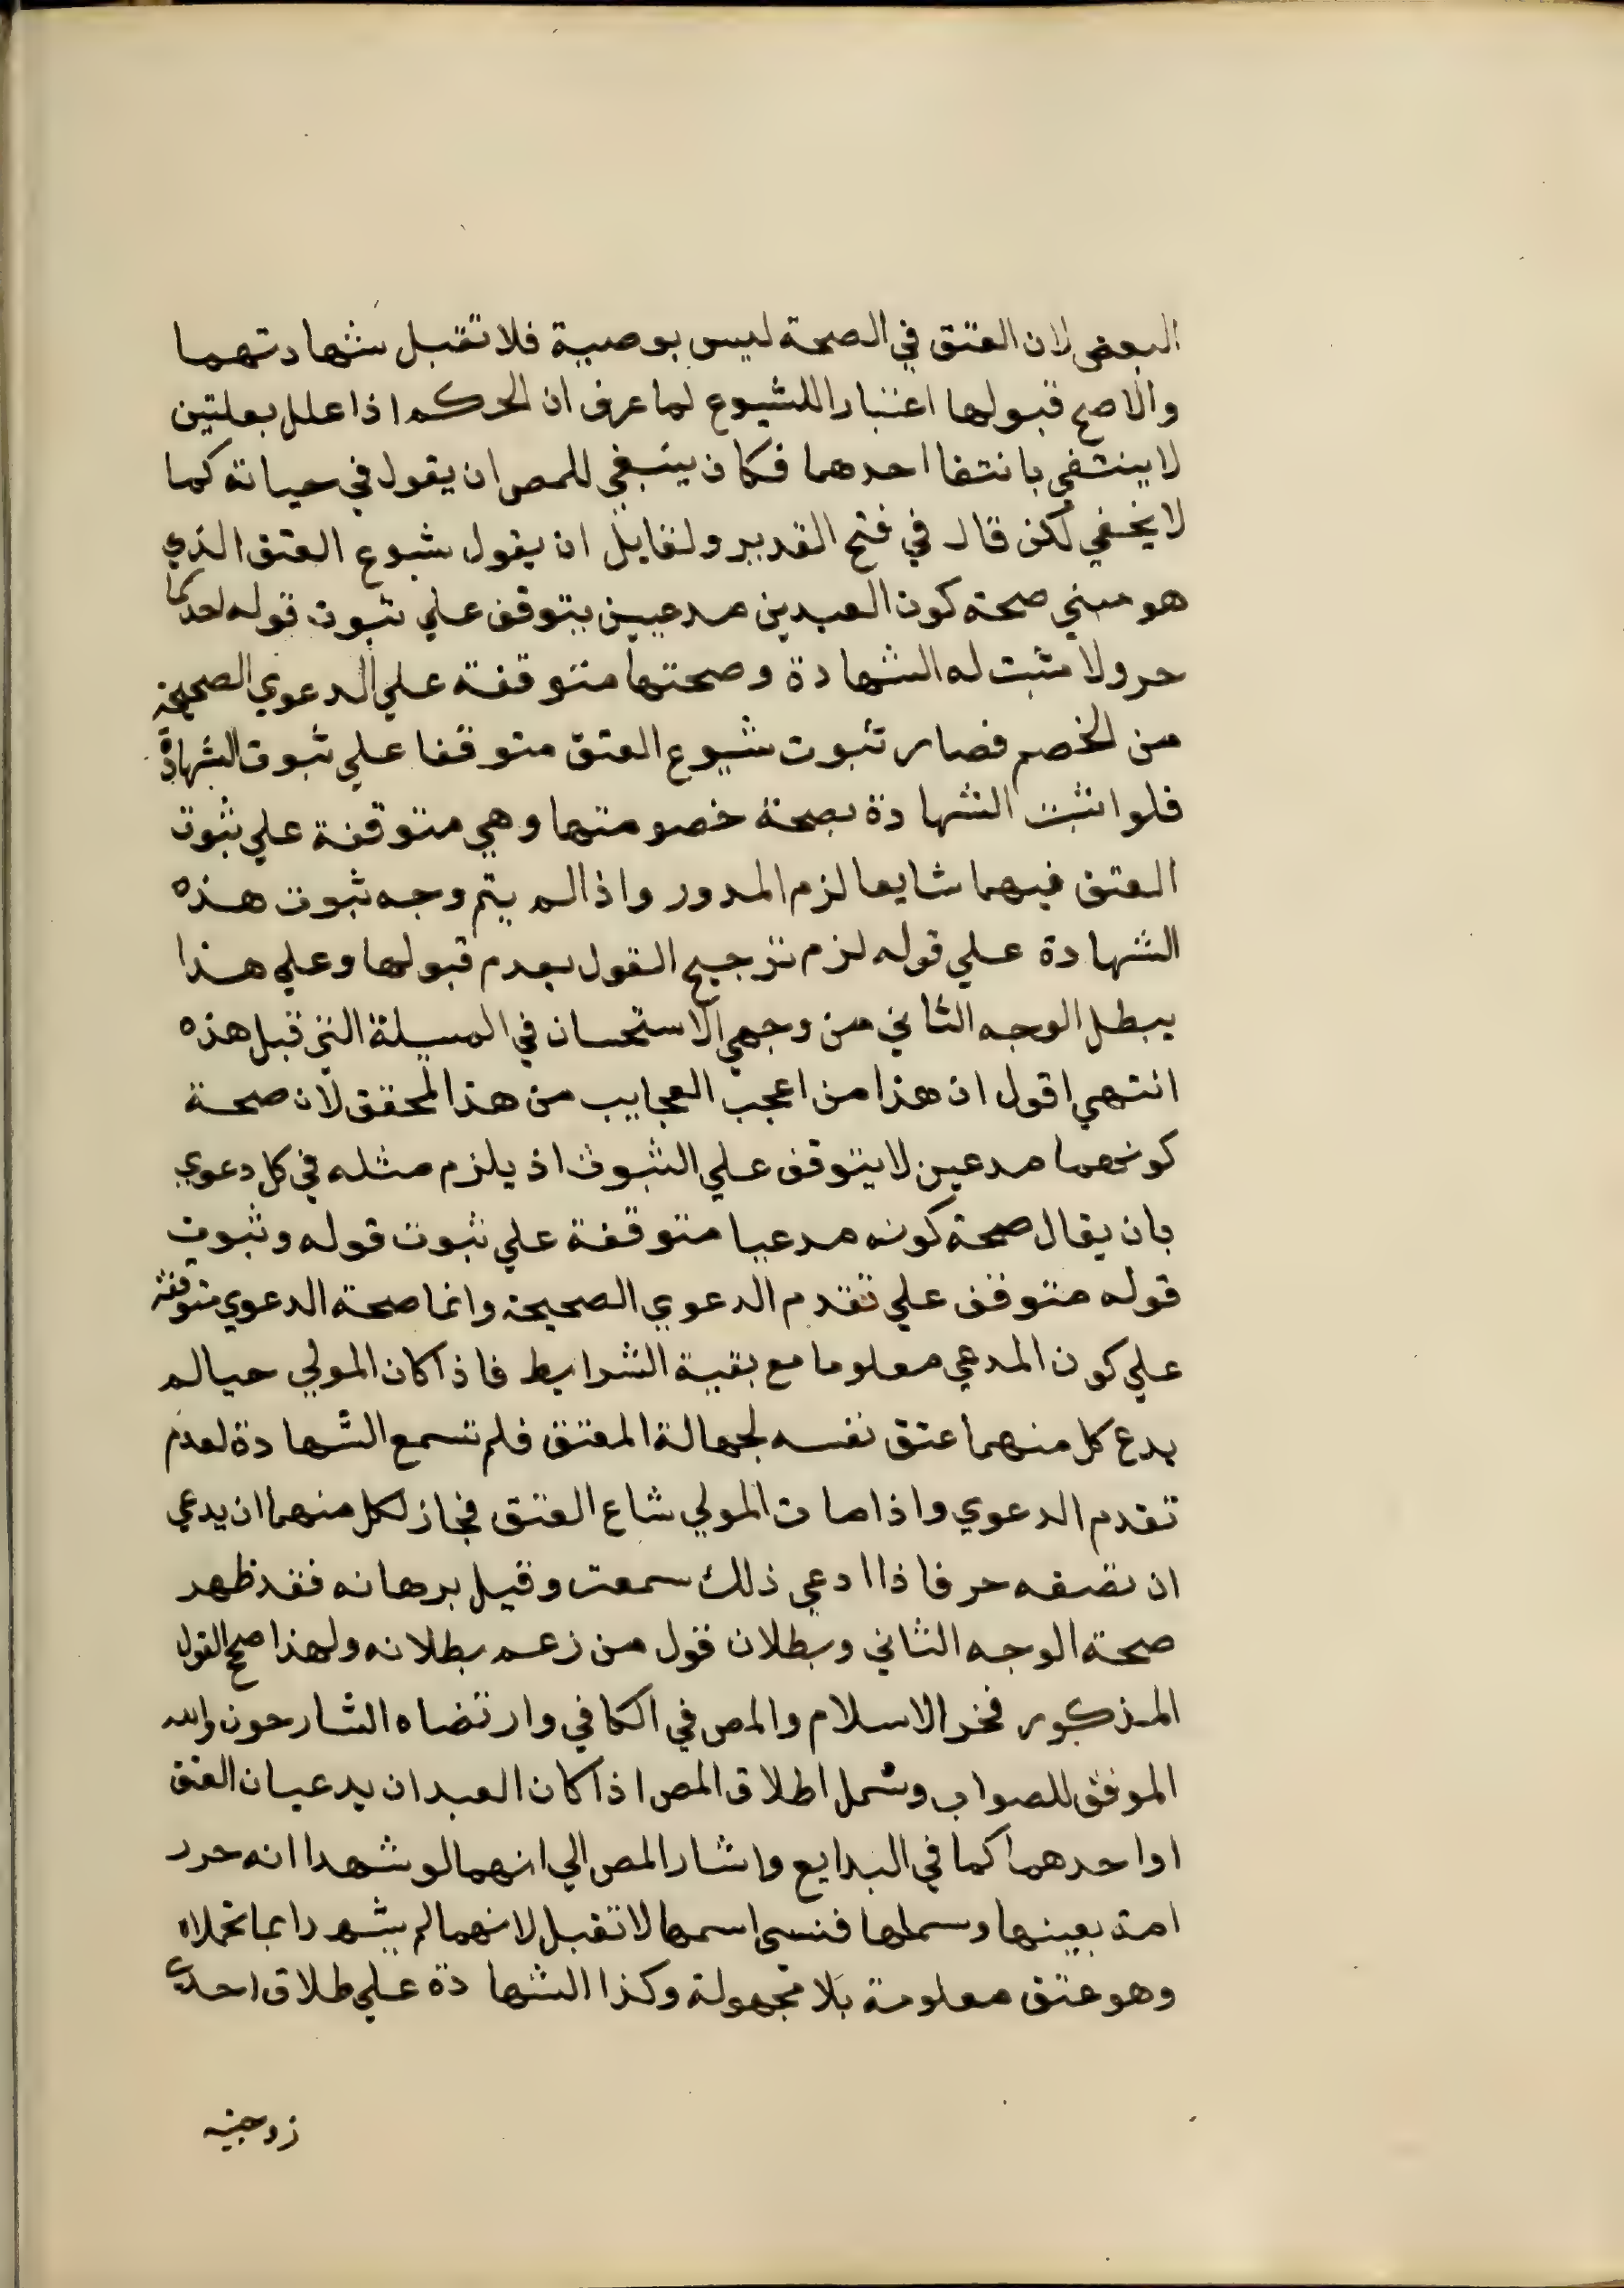 البعض لان العتق في الصحة ليس بوصية فلا تقبل شهادتهما
والاصح قبولها اعتبارا للشيوع لما عرف ان الحركم اذا علل بعلتين
لا ينتفي بانتفا احدهما فكان ينبغي للمص ان يقول في حياته كما
لا يخفي لكن قال في فتح القدير ولقايل ان يقول شيوع العتق الذي
هو مبني صحة كون العبدين مدعيين يتوقف علي ثبوت قوله احدكما
حر ولا مثبت له الشهادة وصحتها متوقفة علي الدعوي الصحيحة
من الخصم فصار ثبوت شيوع العتق متوقفا علي ثبوت الشهادة
فلو اثبت الشهادة بصحة خصومتها وهي متوقفة علي ثبوت
العتق فيهما شايعا لزم المدور واذا لم يتم وجه ثبوت هذه
الشهادة علي قوله لزم ترجيح القول بعدم قبولها وعلي هذا
يبطل الوجه الثاني من وجهي الاستحسان في المسيلة التي قبل هذه
انتهي اقول ان هذا من اعجب العجايب من هذا المحقق لان صحة
كونهما مدعين لا يتوقف علي الثبوت اذ يلزم مثله في كل دعوي
بان يقال صحة كونه مدعيا متوقفة علي ثبوت قوله وثبوت
قوله متوقف علي تقدم الدعوي الصحيحة وانما صحة الدعوي متوقفة
علي كون المدعي معلوما مع بقية الشرايط فاذا كان المولي حيا لم
يدع كل منهما عتق نفسه لجهالة المعتق فلم تسمع الشهادة لعدم
تقدم الدعوي واذا مات المولي شاع العتق فجاز لكل منهما ان يدعي
ان نصفه حر فاذا ادعي ذلك سمعت وقبل برهانه فقد ظهر
صحة الوجه الثاني وبطلان قول من زعم بطلانه ولهذا صحح القول
المذكور فخر الاسلام والمص في الكافي وارتضاه الشارحون والله
الموفق للصواب وشمل اطلاق المص اذا كان العبدان يدعيان العتق
او احدهما كما في البدايع واشار المص الي انهما لو شهدا انه حرر
امة بعينها وسماها فنسي اسمها لا تقبل لانهما لم يشهدا بما تحملاه
وهو عتق معلومة بلا مجهولة وكذا الشهادة علي طلاق احدي
زوجتيه